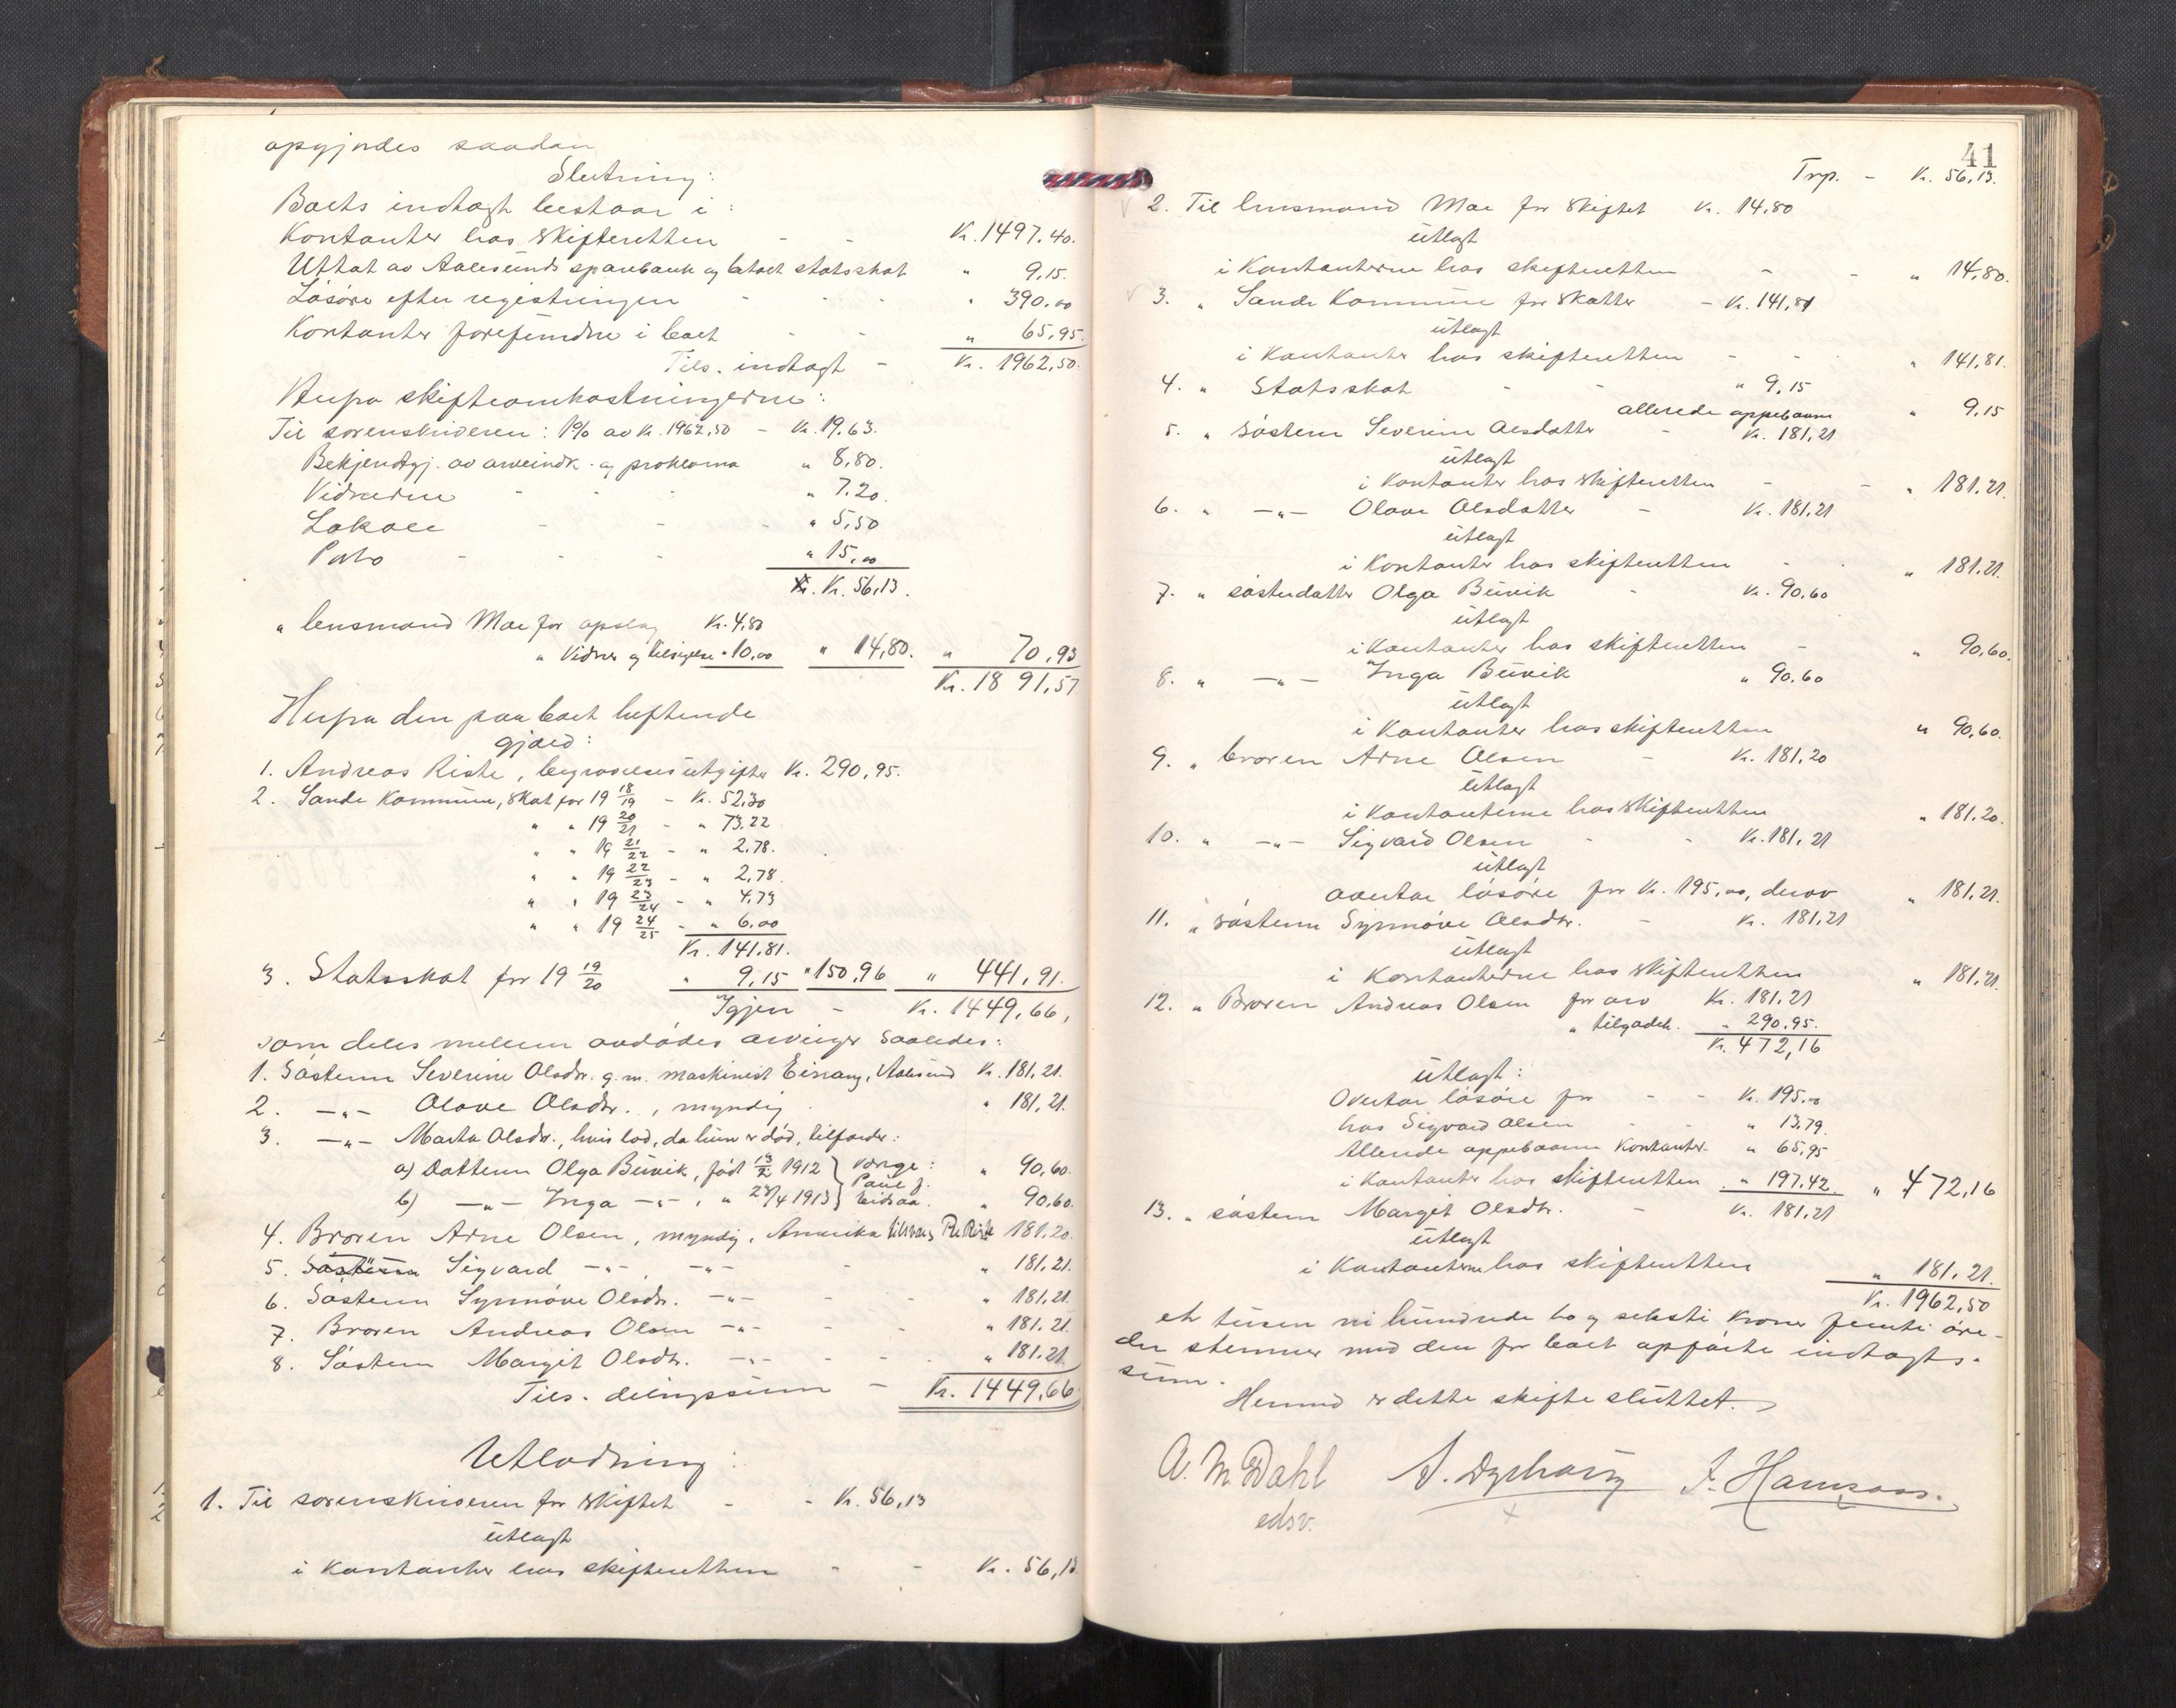 opgjøres saadan
Slutning:
Boets indtægt bestaar i:
Kontanter hos skifteretten - - Kr. 1497.40.
Uttat av Aalesunds sparebank og betalt statsskat " 9,15.
Løsøre efter registreringen - - - " 390.00
Kontanter forefundne i boet - - " 65,95.
Tils. indtægt - Kr. 1962,50.
Herfra skifteomkostningerne:
Til sorenskriveren: 1% av Kr. 1962,50 - Kr. 19,63.
Bekjendtgj. av arveindk. og proklama " 8,80.
Vidnerne - - " 7.20.
Lokale - - - " 5,50
Porto - - - " 15,00
Kr. Kr. 56,13.
" lensmand Moe for opslag Kr. 4,80
" Vidner og tilsigelse " 10,00 " 14,80. " 70,93
Kr. 1891,57
Herfra den paa boet heftende
gjæld:
1. Andreas Riste, begravelsesutgifter Kr. 290,95.
2. Sande Kommune, skat for 19 18/19 - Kr. 52,30
" " 19 20/21 - " 73.22
" " 19 21/22 - " 2.78.
" " 19 22/23 - " 2,78.
" " 19 23/24 - " 4,73
" " 19 24/25 - " 6.00
Kr. 141.81.
3. Statsskat for 19 19/20 " 9,15 " 150,96 " 441,91.
Igjen - Kr. 1449,66,
som deles mellem avdødes arvinger saaledes:
1. Søsteren Severine Olsdtr. g. m. maskinist Eisrang, Aalesund Kr. 181,21.
2. —"— Olave Olsdtr., myndig " 181,21.
3. —"— Marta Olsdtr., hvis lod, da hun er død, tilfalder:
a) Datteren Olga Buvik, født 13/2 1912 } Værge: " 90,60.
Paul J.
b) —"— Inga —"—, " 28/4 1913 } Eidsaa. " 90,60.
4. Broren Arne Olsen, myndig, Amerika Riste 181,20.
5. Søsteren Sigvard —"— , —"— - " 181,21.
6. Søsteren Synnøve Olsdtr. —"— - - " 181,21.
7. Broren Andreas Olsen —"— - - " 181,21.
8. Søsteren Margit Olsdtr. —"— - - " 181.21.
Tils. delingssum - Kr. 1449,66.
Utlodning:
1. Til sorenskriveren for skiftet - - Kr. 56,13
utlagt
i kontanter hos skifteretten - - Kr. 56,13.
41
Trp. - Kr. 56,13.
2. Til lensmand Moe for skiftet Kr. 14.80
utlagt
i Kontanterne hos skifteretten - - " 14,80.
3. " Sande Kommune for skatter - Kr. 141,81
utlagt
i Kontanter hos skifteretten - - " 141,81.
4. " Statsskat - - " 9,15
allerede oppebaaret " 9,15
5. " søsteren Severine Olsdatter - Kr. 181,21
utlagt
i Kontanter hos skifteretten - - " 181.21.
6. " —"— Olave Olsdatter - Kr. 181,21
utlagt
i Kontanter hos skifteretten - " 181.21.
7. " søsterdatter Olga Buvik - Kr. 90,60
utlagt
i Kontanter hos skifteretten - " 90,60.
8. " —"— Inga Buvik " 90.60
utlagt
i Kontanter hos skifteretten " 90,60.
9. " broren Arne Olsen - Kr. 181,20
utlagt
i Kontanterne hos skifteretten " 181.20.
10. " —"— Sigvard Olsen - - Kr. 181,21
utlagt
overtar løsøre for Kr. 195,00, derav " 181,21.
11. " søsteren Synnøve Olsdtr. - Kr. 181,21
utlagt
i Kontanterne hos skifteretten " 181,21.
12. " Broren Andreas Olsen for arv Kr. 181,21
" tilgodeh. " 290.95.
Kr. 472,16
utlagt:
Overtar løsøre for - - Kr. 195.00
hos Sigvard Olsen - - " 13.79.
Allerede oppebaaret kontanter " 65,95
i Kontanter hos skifteretten " 197.42. " 472,16
13. " søsteren Margit Olsdtr. - Kr. 181,21
utlagt
i Kontanterne hos skifteretten " 181,21.
Kr. 1962,50
et tusen ni hundrede to og seksti kroner femti øre -
der stemmer med den for boet opførte indtægts-
sum.
Hermed er dette skifte sluttet.
A. M. Dahl
edsv.